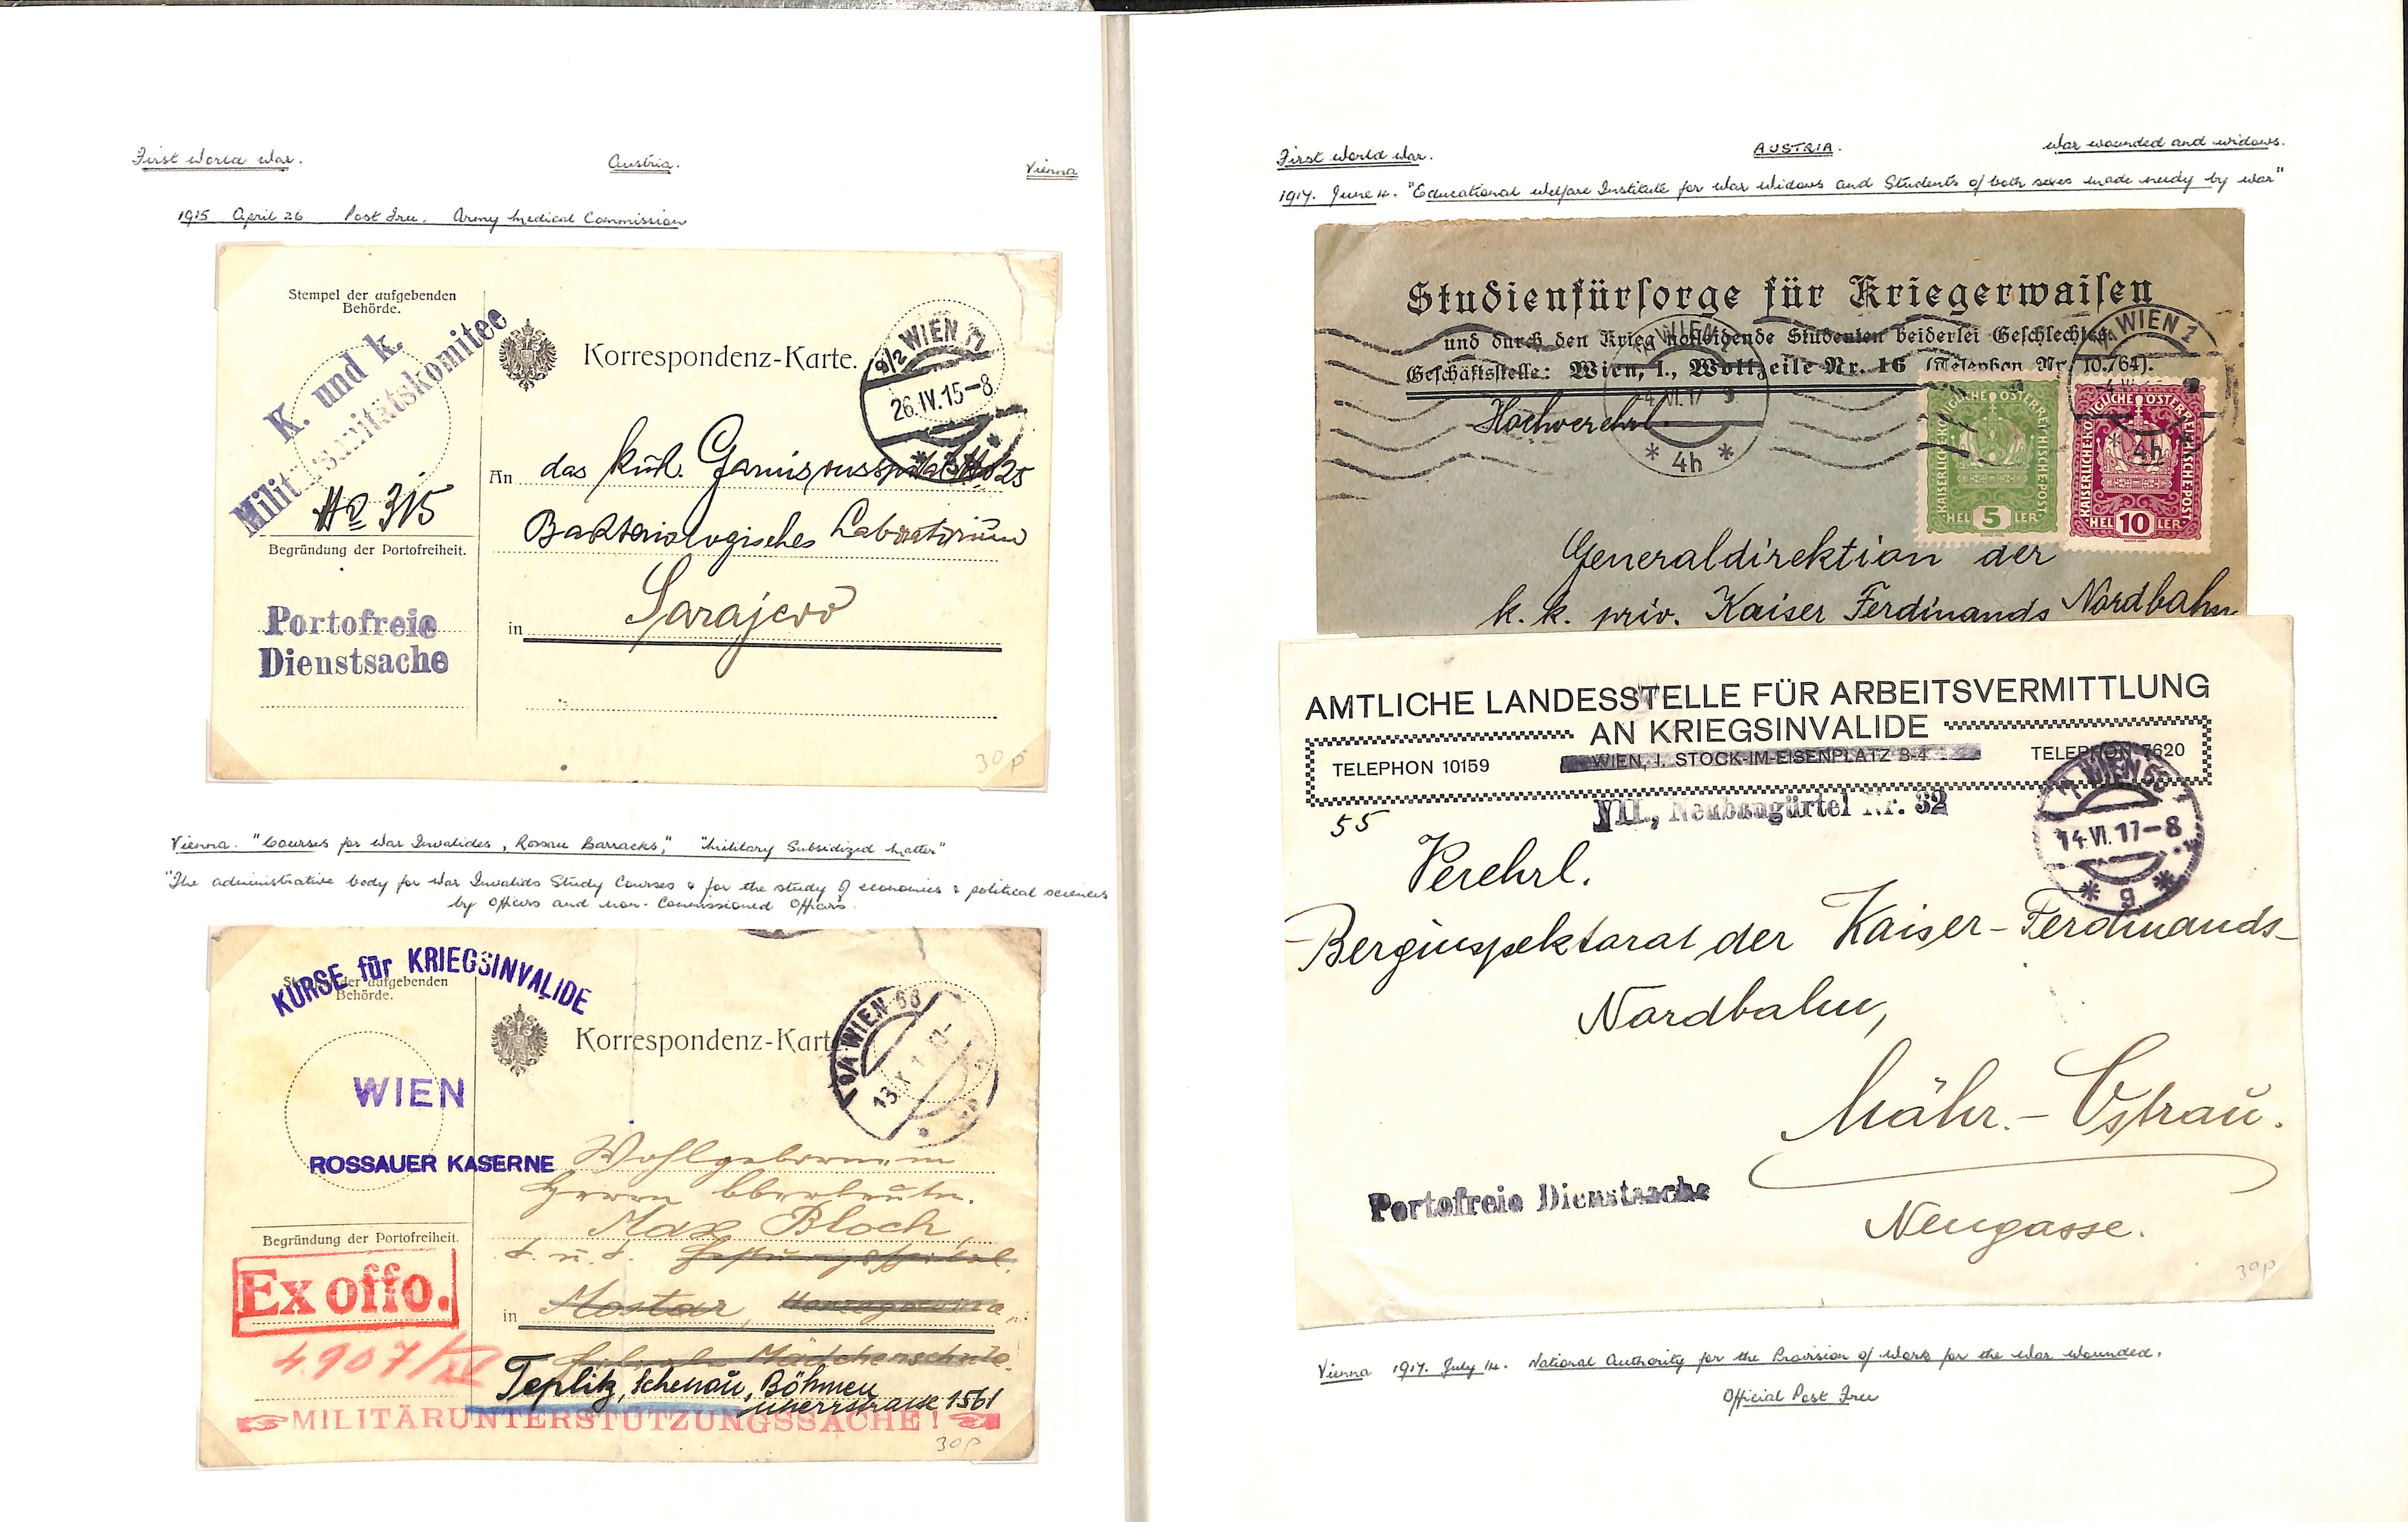 First World War.
Austria.
Vienna
1915 April 26 Post Free. Army Medical Commission
Stempel der aufgebenden
Behörde.
K. und k.
Militärsanitätskomitee
No 315
Begründung der Portofreiheit.
Portofreie
Dienstsache
Korrespondenz-Karte.
9/2 WIEN
26.IV.15-8
An das k.u.k. Garnisonsspital No 25
Bakteriologisches Laboratorium
in Sarajevo
30p
Vienna. "Courses for War Invalides, Rossau Barracks," "Military Subsidized Matter"
"The administrative body for War Invalids Study Courses & for the study of economics & political sciences
by Officers and non-Commissioned Officers.
KURSE für KRIEGSINVALIDE
Stempel der aufgebenden
Behörde.
WIEN
ROSSAUER KASERNE
Begründung der Portofreiheit.
Ex offo.
4907/XV
Korrespondenz-Karte
WIEN
13.X.1
Wohlgeborenen
Herrn Oberleutn.
Max Bloch,
k. u. k.
in Mostar,
Mädchenschule.
Teplitz, Schenau, Böhmen
1561
MILITÄRUNTERSTÜTZUNGSSACHE!
30p
First World War.
AUSTRIA.
War wounded and widows.
1917. June 4. "Educational Welfare Institute for War Widows and Students of both sexes made needy by war"
Studienfürsorge für Kriegerwaisen
und durch den Krieg notleidende Studenten beiderlei Geschlechtes.
Geschäftsstelle: Wien, I., Wollzeile Nr. 16 (Telephon Nr. 10.764).
WIEN 1
4.VI.17 9
* 4h *
WIEN 1
4h
KAISERLICHE KÖNIGLICHE ÖSTERREICHISCHE POST
HEL 5 LER
KAISERLICHE KÖNIGLICHE ÖSTERREICHISCHE POST
HEL 10 LER
Hochverehrl.
Generaldirektion der
k. k. priv. Kaiser Ferdinands Nordbahn
AMTLICHE LANDESSTELLE FÜR ARBEITSVERMITTLUNG
AN KRIEGSINVALIDE
TELEPHON 10159
WIEN, I. STOCK-IM-EISENPLATZ 3-4
TELEPHON 7620
VII., Neubaugürtel Nr. 32
WIEN
14.VI.17-8
* g *
55
Verehrl.
Berginspektorat der Kaiser-Ferdinands-
Nordbahn,
Mähr.-Ostrau.
Neugasse.
Portofreie Dienstsache
30p
Vienna 1917. July 14. National Authority for the Provision of Work for the War Wounded.
Official Post Free